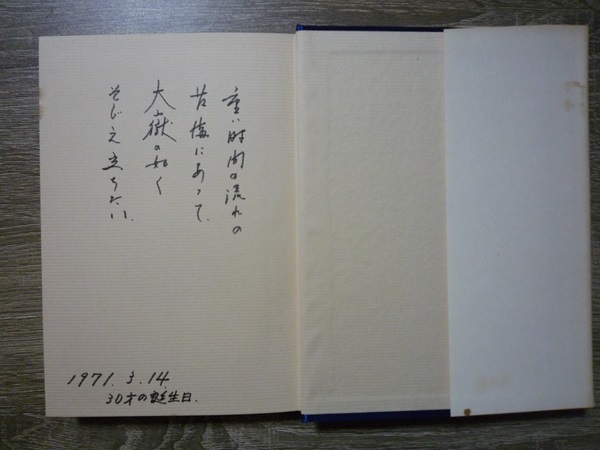 重い時間の流れの
苦悔にあって
大嶽の如く
そびえ立ちたい、
1971.3.14
30才の誕生日.